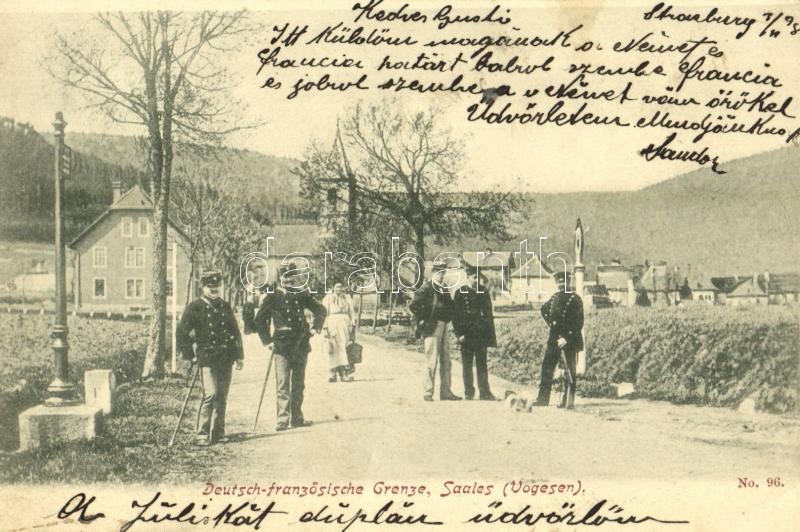 Kedves Gusti Strasburg
Itt küldöm magának a Német és
francia határt balrol szembe francia
és jobrol szembe a Német vám örökel
Üdvözletem Mindjájuknak
Sandor
darabanth
Deutsch-französische Grenze, Saales (Vogesen).
No. 96.
A Juliskát duplán üdvözlöm